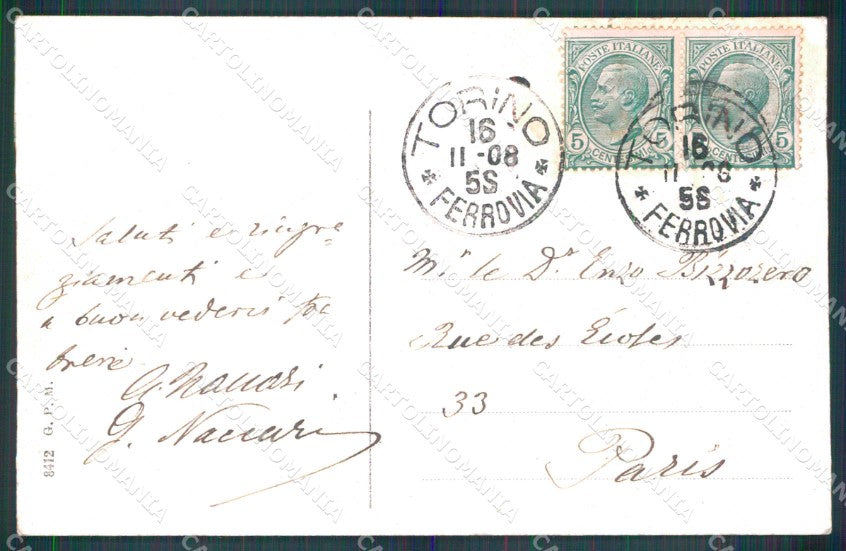 POSTE ITALIANE
5 CENT. 5
POSTE ITALIANE
CENT. 5
TORINO
16
11-08
5S
FERROVIA
TORINO
16
11-08
5S
FERROVIA
Saluti e ringra-
ziamenti e
a buon vederci tra
breve
G. Naccari
Mr le Dr Enzo Bizzozero
Rue des Écoles
33
Paris
8412 G. P. M.
CARTOLINOMANIA